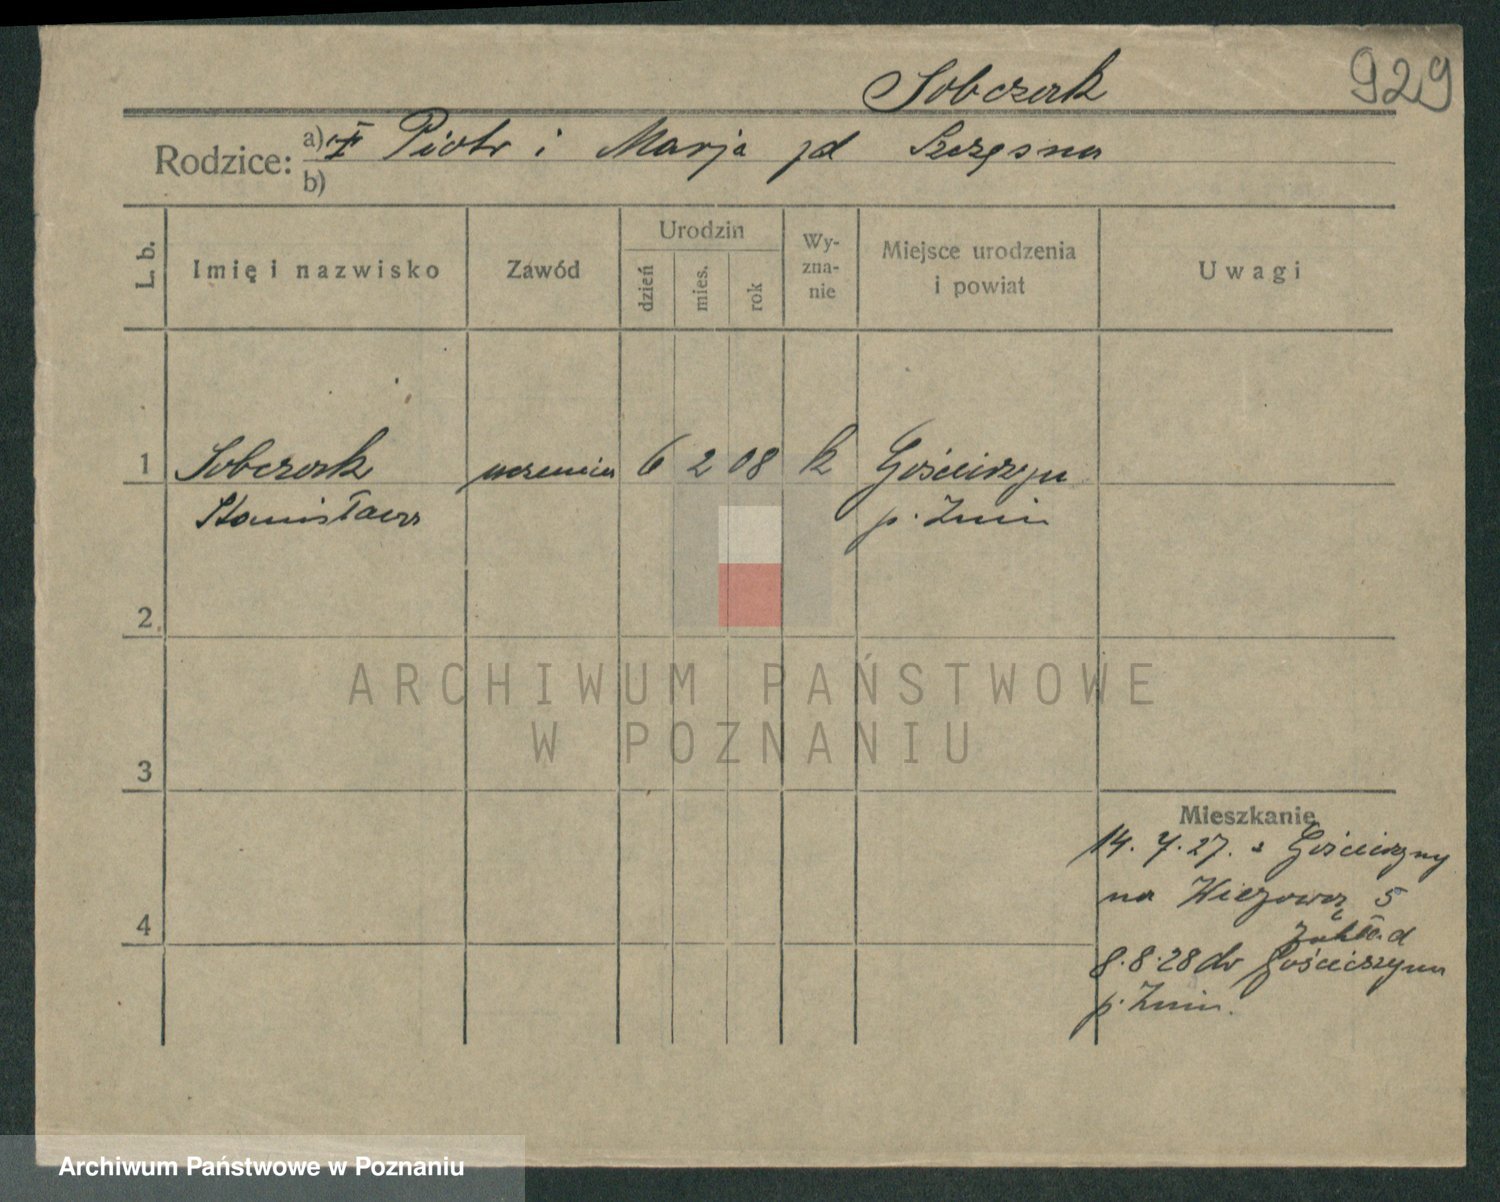 929
Sobczak
Rodzice: a) Piotr i Marja zd Szczęsna
b)
L. b. Imię i nazwisko Zawód Urodzin dzień mies. rok Wy-zna-nie Miejsce urodzenia i powiat Uwagi
1 Sobczak uczenica 6 2 08 k Gościeszyn
Stanisława p. Żnin
2
3
4
Mieszkanie
14. 7. 27. z Gościeszyny
na Wiezową 5
Zakład
8. 8. 28 do Gościeszyna
p. Żnin.
ARCHIWUM PAŃSTWOWE
W POZNANIU
Archiwum Państwowe w Poznaniu